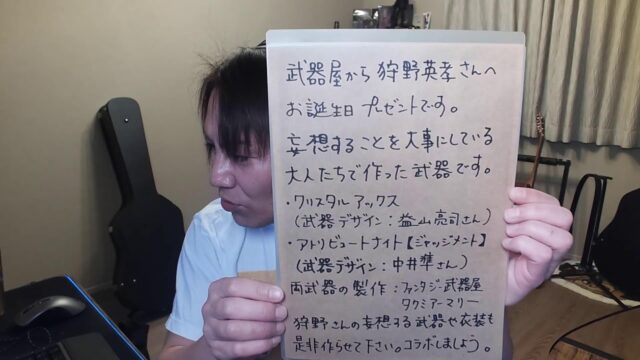 武器屋から狩野英孝さんへ
お誕生日プレゼントです。
妄想することを大事にしている
大人たちで作った武器です。
・クリスタルアックス
(武器デザイン:益山亮司さん)
・アトリビュートナイト【ジャッジメント】
(武器デザイン:中井準さん)
両武器の製作:ファンタジー武器屋
タクミアーマリー
狩野さんの妄想する武器や衣装も
是非作らせて下さい。コラボしましょう。